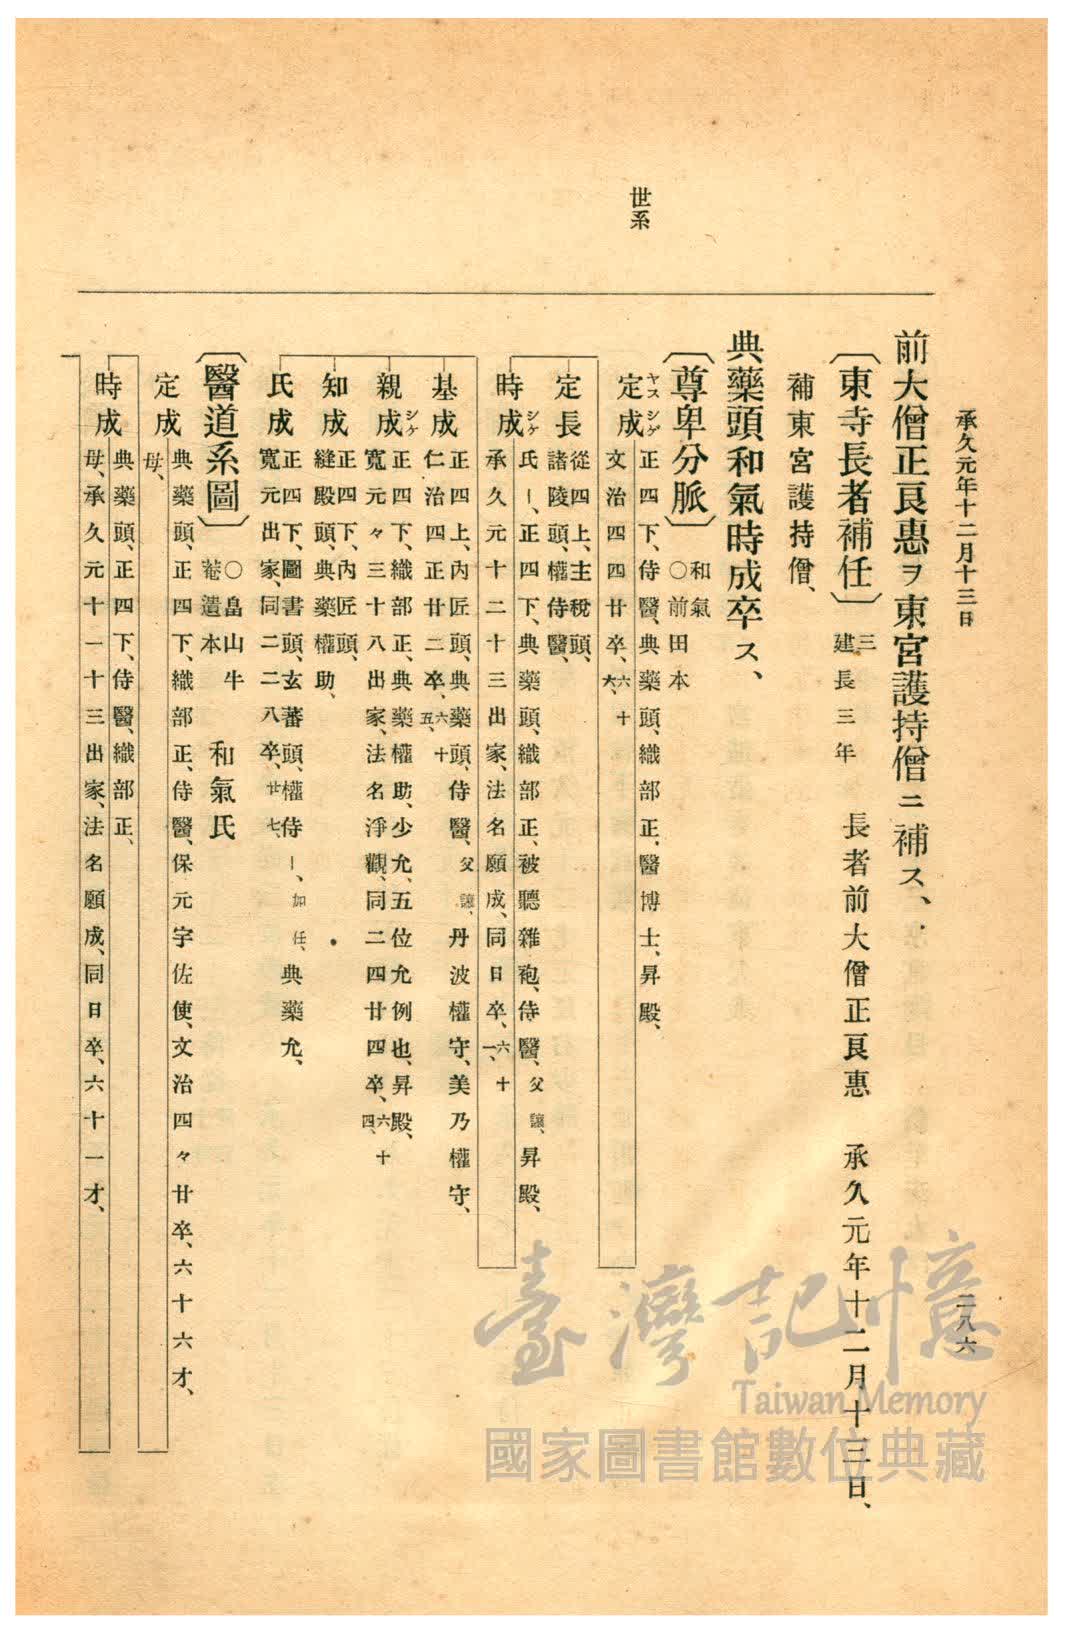 承久元年十二月十三日
二八六
世系
前大僧正良惠ヲ東宮護持僧ニ補ス、
〔東寺長者補任〕三 建長三年 長者前大僧正良惠 承久元年十二月十三日、
補東宮護持僧、
典藥頭和氣時成卒ス、
〔尊卑分脈〕和氣 〇前田本
定成 ヤスシゲ
正四下、侍醫、典藥頭、織部正、醫博士、昇殿、
文治四四廿卒、六十六、
定長
從四上、主稅頭、
諸陵頭、權侍醫、
時成 シゲ
氏ー、正四下、典藥頭、織部正、被聽雜袍、侍醫、父讓、昇殿、
承久元十二十三出家、法名願成、同日卒、六十一、
基成
正四上、內匠頭、典藥頭、侍醫、父讓、丹波權守、美乃權守、
仁治四四正廿二卒、六十五、
親成 シゲ
正四下、織部正、典藥權助、少允、五位允例也、昇殿、
寬元々三十八出家、法名淨觀、同二四廿四卒、六十四、
知成
正四下、內匠頭、
縫殿頭、典藥權助、
氏成
正四下、圖書頭、玄蕃頭、權侍ー、加任、典藥允、
寬元出家、同二二八卒、廿七、
〔醫道系圖〕〇畠山牛菴遺本 和氣氏
定成
典藥頭、正四下、織部正、侍醫、保元宇佐使、文治四々廿卒、六十六才、
母、
時成
典藥頭、正四下、侍醫、織部正、
母、承久元十一十三出家、法名願成、同日卒、六十一才、
臺灣記憶
Taiwan Memory
國家圖書館數位典藏